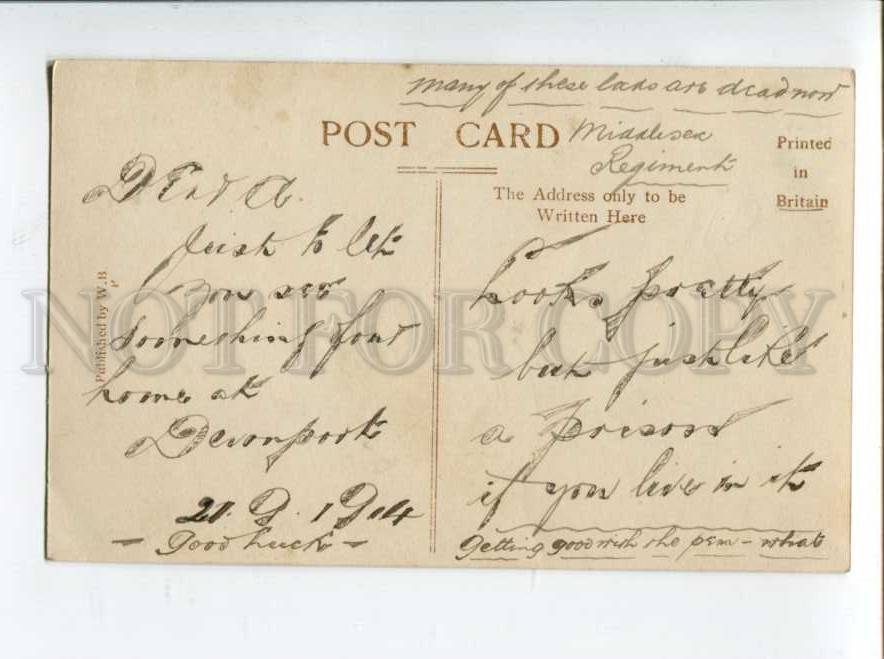 many of these lads are dead now
POST CARD
Middlesex
Regiment
Printed
in
Britain
The Address only to be
Written Here
Published by W.B
P
Dear A.
Just to let
you see
something four
home at
Devonport
21. 9. 1914
– Good Luck –
Looks pretty
but just like
a prison
if you live in it
Getting good with the pen – what
NOT FOR COPY